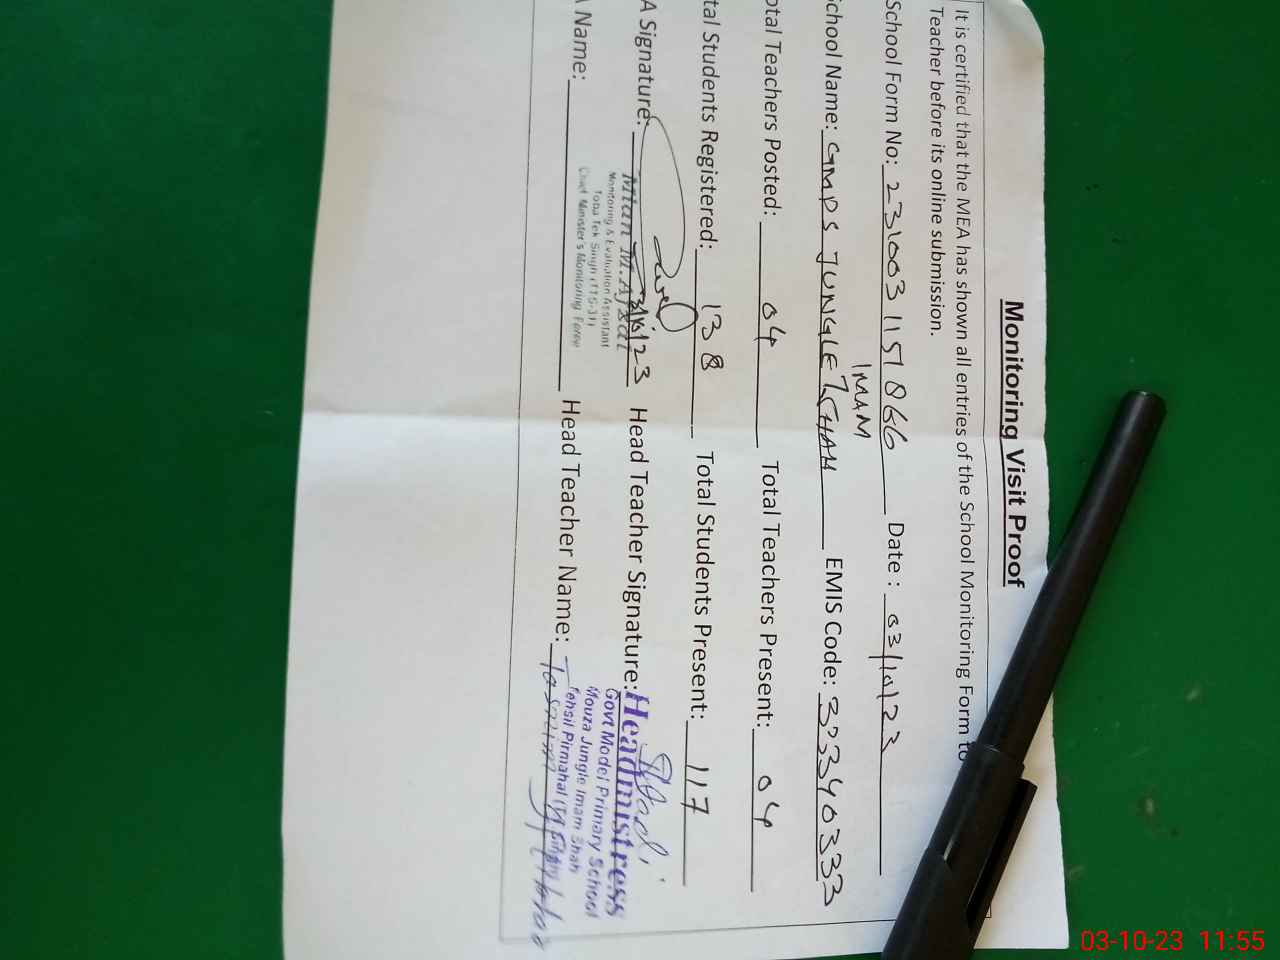 Monitoring Visit Proof
It is certified that the MEA has shown all entries of the School Monitoring Form to
Teacher before its online submission.
School Form No: 2310031151866 Date : 03/10/23
chool Name: GMPS JUNGLE IMAM SHAH EMIS Code: 33340333
otal Teachers Posted: 04 Total Teachers Present: 04
tal Students Registered: 138 Total Students Present: 117
A Signature: 3/10/23 Head Teacher Signature:
Mian M. Afzal
Monitoring & Evaluation Assistant
Toba Tek Singh (TTS-31)
Chief Minister's Monitoring Force
Headmistress
Govt Model Primary School
Mouza Jungle Imam Shah
Tehsil Pirmahal
A Name: Head Teacher Name:
03-10-23 11:55